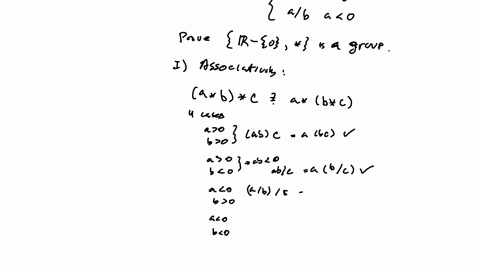 { a/b a<0
Prove {ℝ-{0}, *} is a group.
I) Associativity:
(a*b)*c ? a*(b*c)
4 cases
a>0
b>0 } (ab)c = a(bc) ✓
a>0
b<0 } → ab<0 ab/c = a(b/c) ✓
a<0 (a/b)/ -
b>0
a<0
b<0